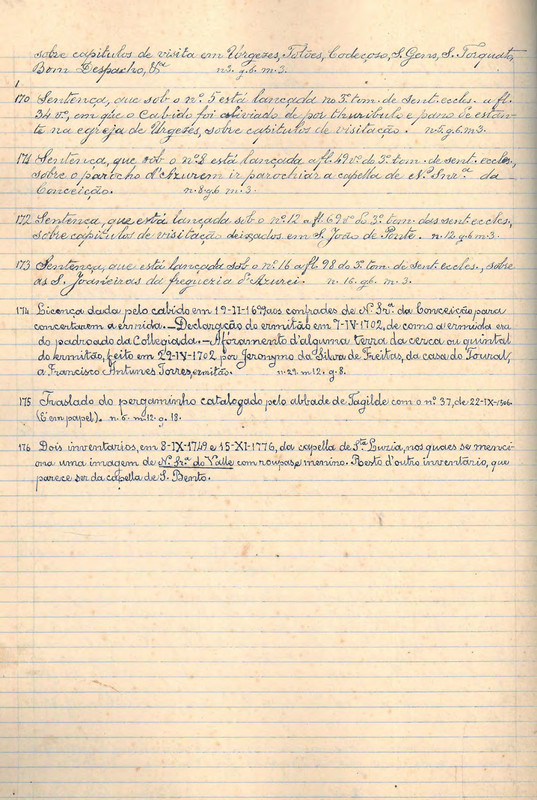 sobre capitulos de visita em Urgezes, Tolões, Codeçoso, S. Gens, S. Torquato,
Bom Despacho, &ª n.3. g.6. m.3.
170 Sentença, que sob o nº 5 está lançada no 3º tom. de sent. eccles. a fl.
34 vº, em que o Cabido foi alliviado de por thuribulo e pano de estan-
te na egreja de Urgezes, sobre capitulos de visitação. n.5. g.6. m.3.
171 Sentença, que sob o nº 8 está lançada a fl. 49 vº do 3º tom. de sent. eccles.,
sobre o parocho d'Azurem ir parochiar a capella de N.ª Snrª da
Conceição. n.8. g.6 m.3.
172 Sentença, que está lançada sob o nº 12 a fl. 69 vº do 3º tom. das sent. eccles.,
sobre capitulos de visitação deixados em S. João de Ponte. n.12. g.6. m.3.
173 Sentença, que está lançada sob o nº 16 a fl. 98 do 3º tom. de sent. eccles., sobre
as S. Joaneiras da freguezia d'Azurei. n.16. g.6. m.3.
174 Licença dada pelo cabido em 19-II- aos confrades de N. Srª da Conceição para
concertarem a ermida. — Declaração do ermitão em 7-IV-1702, de como a ermida era
do padroado da Collegiada. — Aforamento d'alguma terra da cerca ou quintal
do ermitão, feito em 29-IV-1702, por Jeronymo da Silva de Freitas, da casa do Toural,
a Francisco Antunes Torres, ermitão. n.29. m.12. g.8.
175 Traslado do pergaminho catalogado pelo abbade de Tagilde com o nº 37, de 22-IX-1306.
(É em papel). n.6. m.12. g.18.
176 Dois inventarios, em 8-IX-1749 e 15-XI-1776, da capella de Stª Luzia, nos quaes se menci-
ona uma imagem de N. Srª do Valle com roupas e menino. Resto d'outro inventario, que
parece ser da capella de S. Bento.